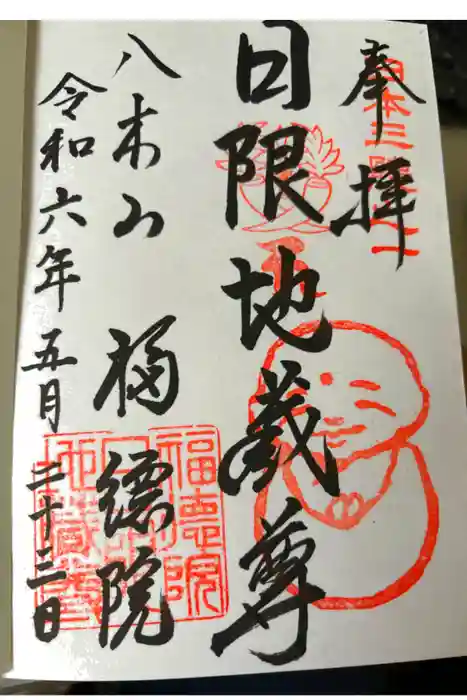 奉拝
日限地蔵尊
八木山 福德院
令和六年五月二十三日
福德院